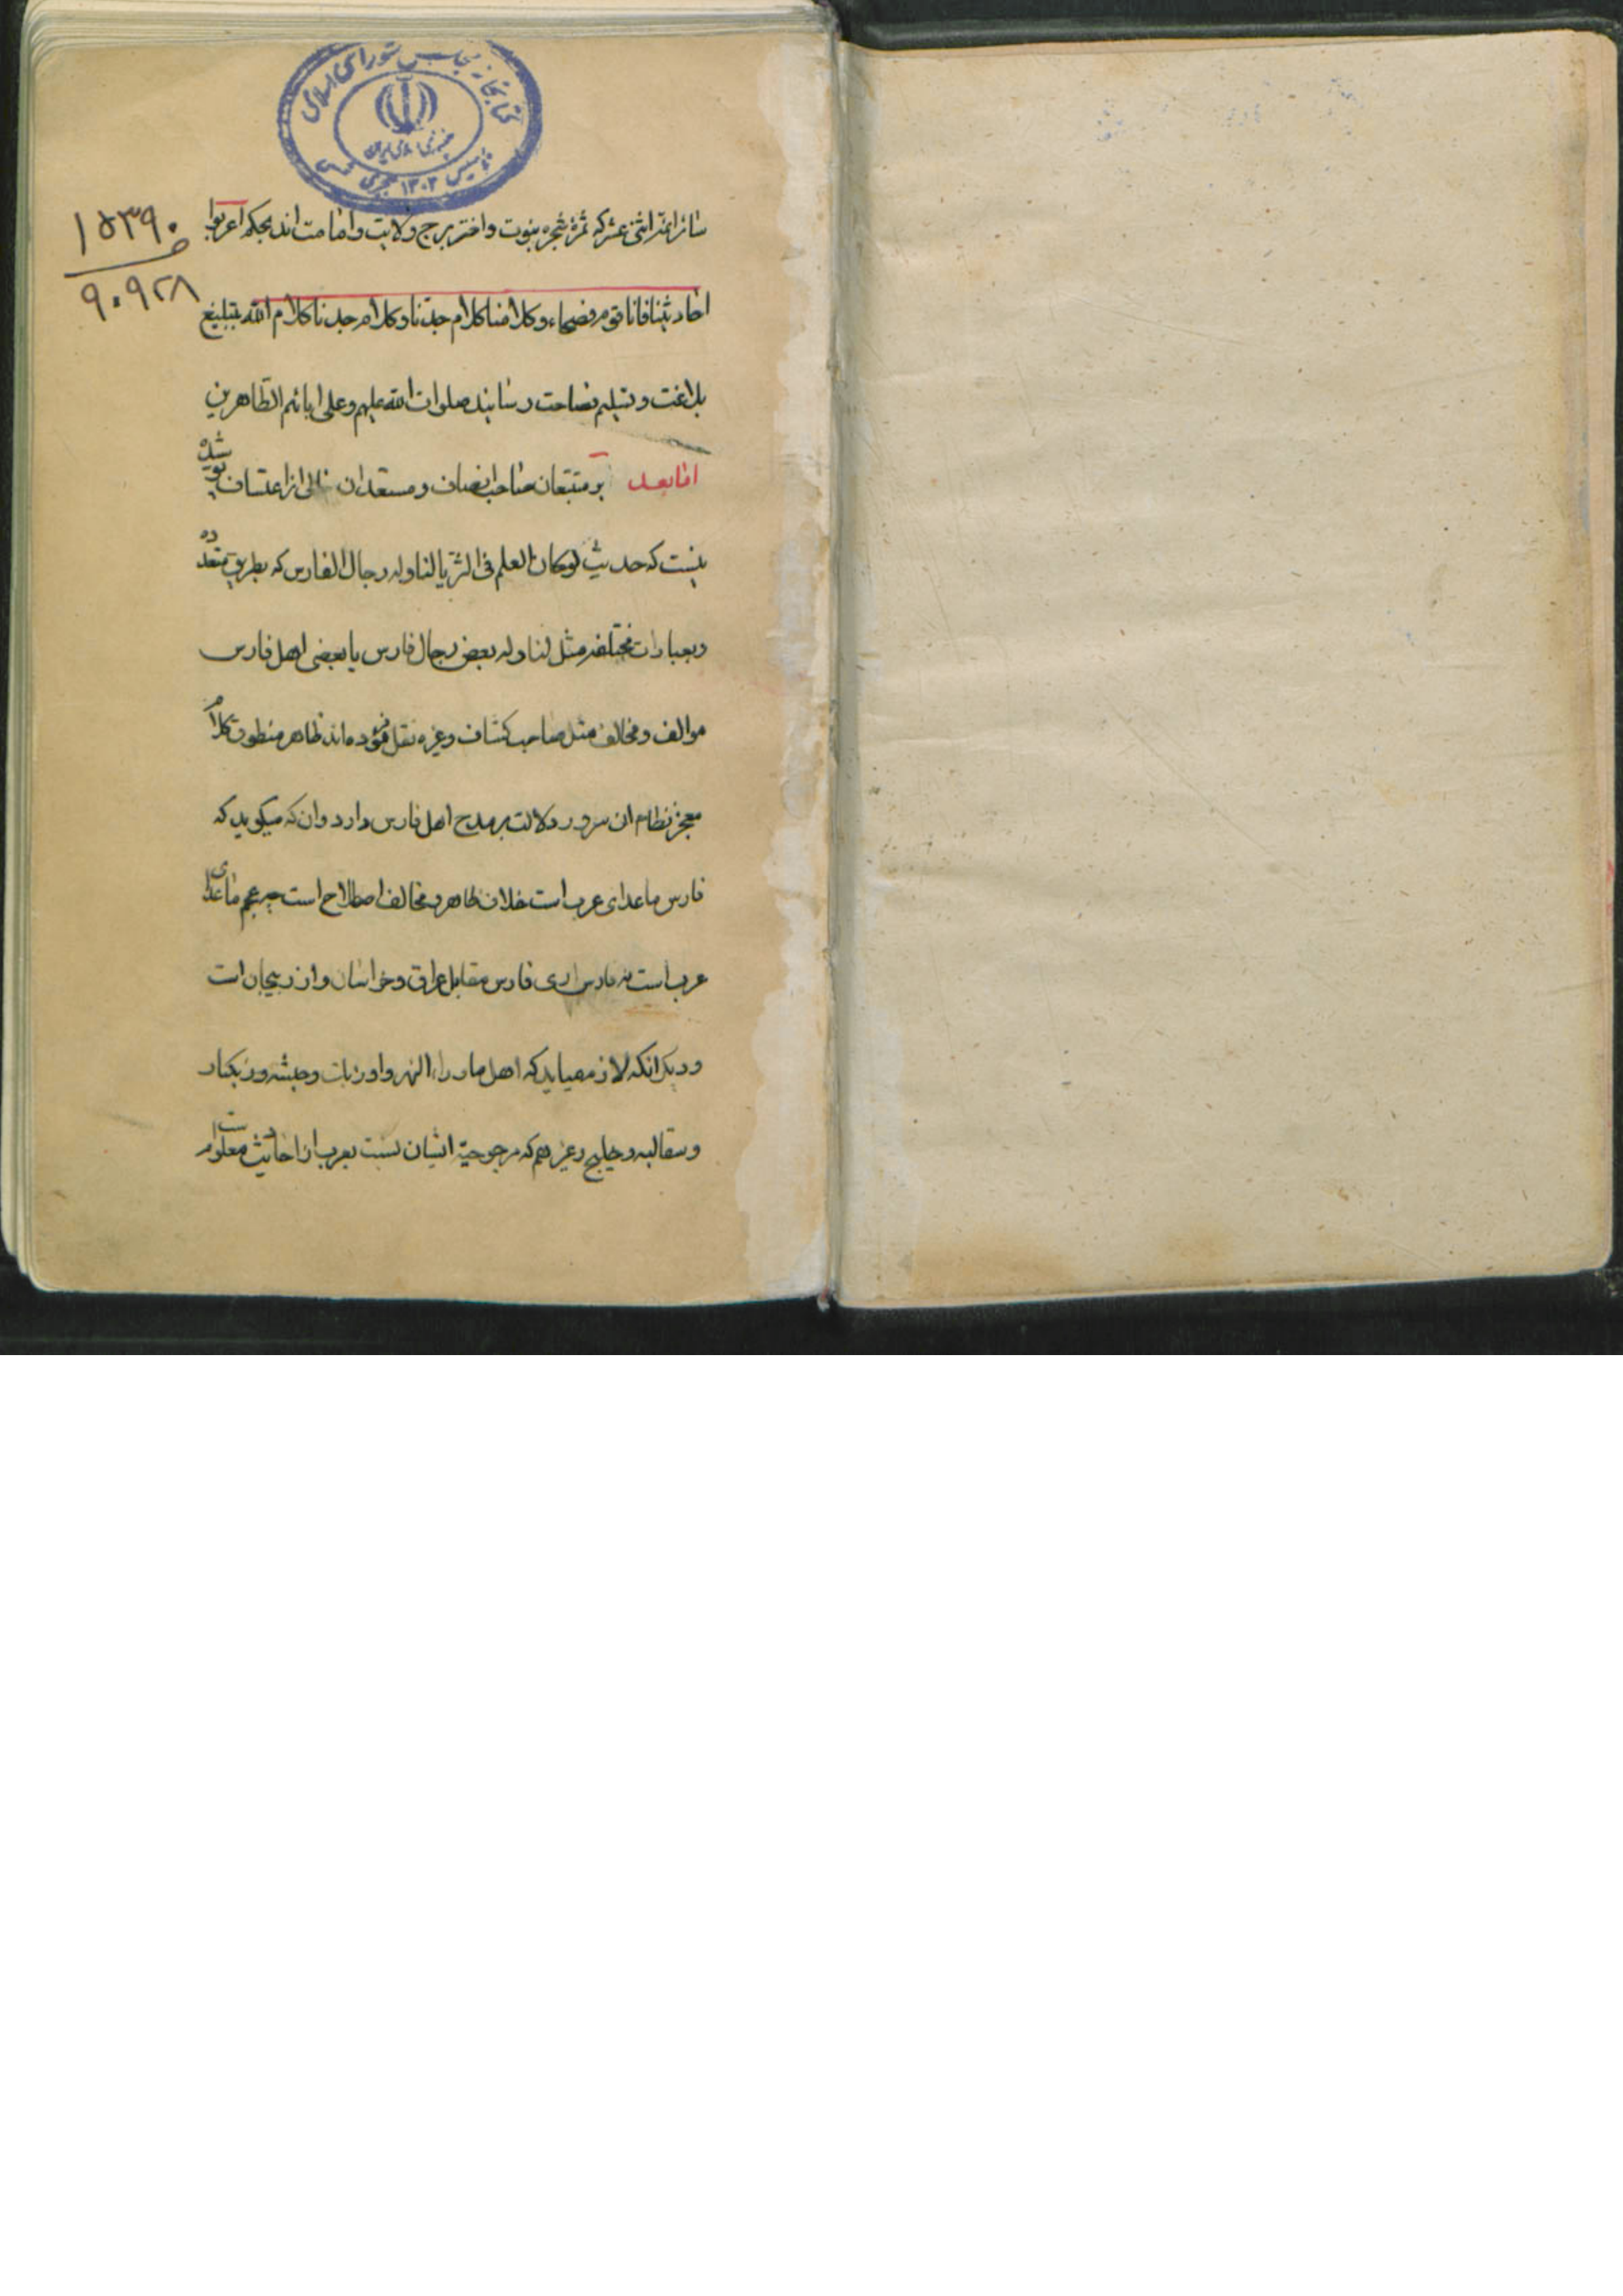 کتابخانه مجلس شورای اسلامی
جمهوری اسلامی ایران
تاسیس ۱۳۰۲ هجری شمسی
۱۵۳۹۰
۹۰۹۲۸
سائر ائمه اثنی عشر که ثمرهٔ شجره نبوت و اختر برج ولایت و امامت اند بحکم اعربوا
احادیثنا فانا قوم فصحاء و کلامنا کلام جدنا و کلام جدنا کلام الله بتبلیغ
بلاغت و تسلیم فصاحت رسانید صلوات الله علیهم و علی ابائهم الطاهرین
اما بعد بر متتبعان صاحب انصاف و مستعدان خالی از اعتساف پوشیده
نیست که حدیث لو کان العلم فی الثریا لتناوله رجال الفارس که بطریق متعدده
و بعبارات مختلفه مثل لتناوله بعض رجال فارس یا بعضی اهل فارس
موالف و مخالف مثل صاحب کشاف و غیره نقل فرموده اند ظاهر منطوق کلام
معجز نظام ان سرور دلالت بر مدح اهل فارس دارد و ان که میکوید که
فارس ما عدای عرب است خلاف ظاهر و مخالف اصطلاح است چه عجم ما عدای
عرب است نه فارس اری فارس مقابل عراق و خراسان و اذربیجان است
و دیکر انکه لازم میاید که اهل ماوراء النهر و اوزبات و حبشه و زنکبار
و سقالبه و خلیج و غیرهم که مرجوحیة ایشان نسبت بعرب از احادیث معلومست